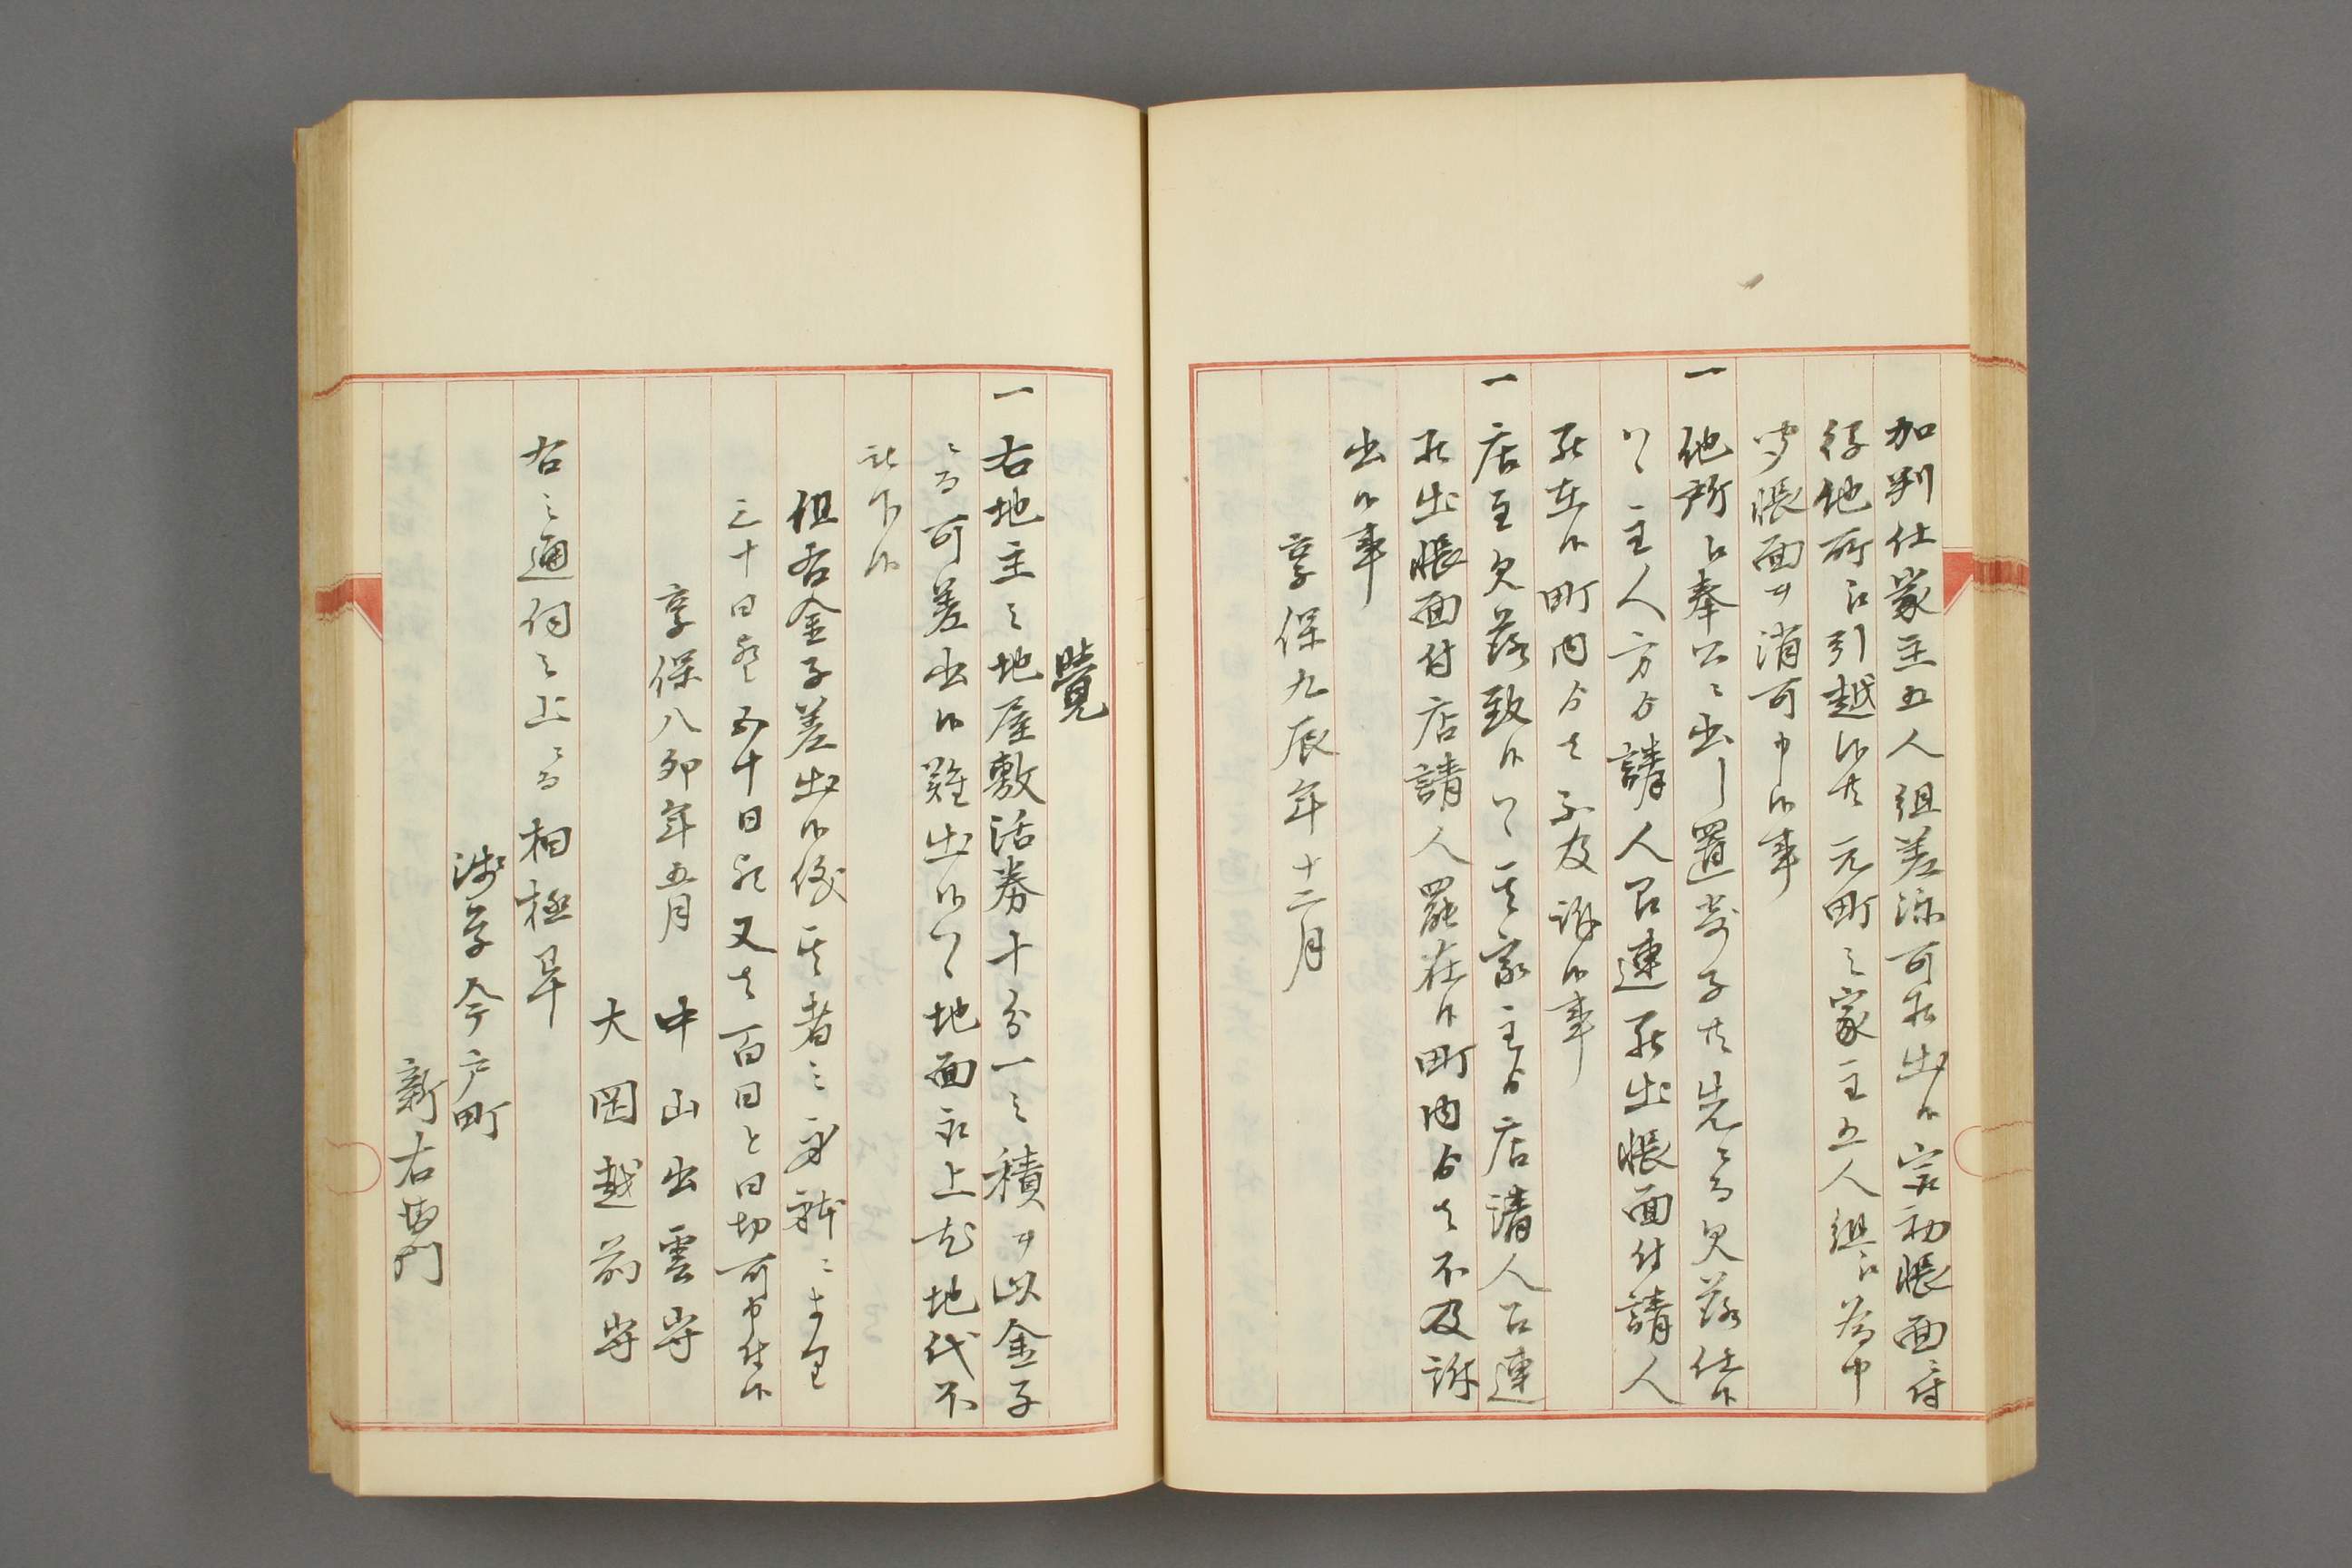 加判仕家主五人組差添可罷出候最初帳面ニ付
候他所江引越候共元町之家主五人組江為申
聞帳面ヲ消可申候事
一他所江奉公ニ出シ置候寄子共先ニ而欠落仕候
ハヽ主人方ゟ請人召連罷出帳面付請人
罷在候町内ゟ者不及訴候事
一店立欠落致候ハヽ其家主ゟ店請人召連
罷出帳面付店請人罷在候町内ゟ者不及訴
出候事
享保九辰年十二月
覺
一右地主之地屋敷沽券十分一之積ヲ以金子
ニ而可差出候難出候ハヽ地面取上ケ地代不
被下候
但右金子差出候儀其者之身躰ニ
三十日或五十日或又者百日と日切可申付候
享保八卯年五月 中山出雲守
大岡越前守
右之通伺之上ニ而相極早
浅草今戸町
新右衛門